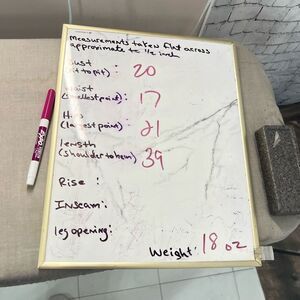 measurements taken flat across
approximate to 1/2 inch
Bust
(pit to pit) : 20
Waist
(smallest point) : 17
Hip
(largest point) : 21
length
(shoulder to hem) : 39
Rise :
Inseam :
leg opening :
Weight : 18 oz
EXPO